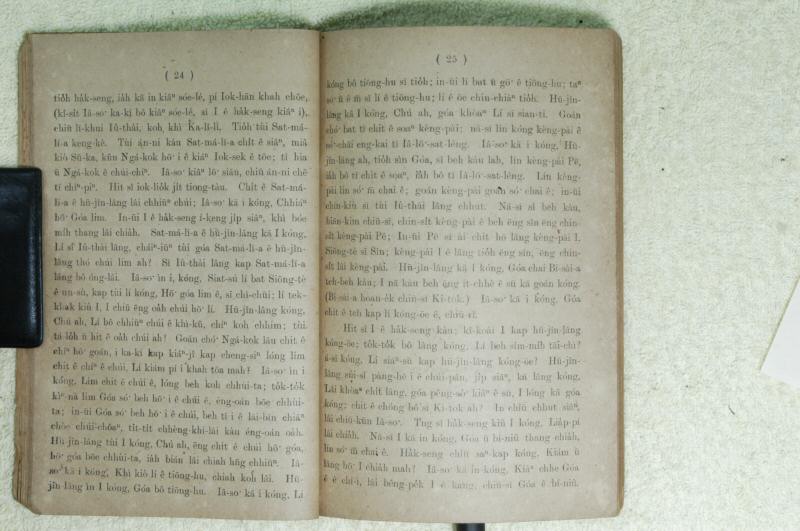 ( 24 )
tio̍h ha̍k-seng, iáh kā in kiâⁿ sóe-lé, pí Iok-hān khah chōe,
(kî-si̍t Iâ-so͘ ka-kī bô kiâⁿ sóe-lé, sī I ê ha̍k-seng kiâⁿ i),
chiū lī-khui Iû-thài, koh khì Ka-lī-lī. Tio̍h tùi Sat-má-
lī-a keng-kè. Tùi án-ni kàu Sat-má-lī-a chi̍t ê siâⁿ, miâ
kiò Sū-ka, kūn Ngá-kok hō͘ i ê kiáⁿ Iok-sek ê tōe; tī hia
ū Ngá-kok ê chúi-chíⁿ. Iâ-so͘ kiâⁿ lō͘ siān, chiū án-ni chē
tī chíⁿ-piⁿ. Hit sî iok-lio̍k ji̍t tiong-tàu. Chi̍t ê Sat-má-
lī-a ê hū-jîn-lâng lâi chhiūⁿ chúi; Iâ-so͘ kā i kóng, Chhiáⁿ
hō͘ Góa lim. In-ūi I ê ha̍k-seng í-keng ji̍p siâⁿ, khì bóe
mi̍h thang lâi chia̍h. Sat-má-lī-a ê hū-jîn-lâng kā I kóng,
Lí sī Iû-thài lâng, cháiⁿ-iūⁿ tùi góa Sat-má-lī-a ê hū-jîn-
lâng thó chúi lim ah? Sī Iû-thài lâng kap Sat-má-lī-a
lâng bô óng-lâi. Iâ-so͘ ìn i, kóng, Siat-sú lí bat Siōng-tè
ê un-sù, kap tùi lí kóng, Hō͘ góa lim ê, sī chī-chūi; lí tek-
khak kiû I, I chiū ēng oa̍h chúi hō͘ lí. Hū-jîn-lâng kóng,
Chú ah, Lí bô chhiūⁿ chúi ê khì-kū, chíⁿ koh chhim; tùi
tá-lo̍h ū hit ê oa̍h chúi ah? Goán chó͘ Ngá-kok lâu chit ê
chíⁿ hō͘ goán, i ka-kī kap kiáⁿ-jî kap cheng-siⁿ lóng lim
chit ê chíⁿ ê chúi, Lí kiám pí i khah tōa mah? Iâ-so͘ ìn i
kóng, Lim chit ê chúi ê, lóng beh koh chhùi-ta; to̍k-to̍k
kìⁿ-nā lim Góa só͘ beh hō͘ i ê chúi ê, éng-oán bōe chhùi-
ta; in-ūi Góa só͘ beh hō͘ i ê chúi, beh tī i ê lāi-bīn chiâⁿ
chòe chúi-chôaⁿ, ti̍t-ti̍t chhèng-khí-lâi kàu éng-oán oa̍h.
Hū-jîn-lâng tùi I kóng, Chú ah, ēng chit ê chúi hō͘ góa,
hō͘ góa bōe chhùi-ta, iáh bián lâi chiah hn̄g chhiūⁿ. Iâ-
so͘ kā i kóng, Khì kiò lí ê tiōng-hu, chiah koh lâi. Hū-
jîn-lâng ìn I kóng, Góa bô tiōng-hu. Iâ-so͘ kā i kóng, Lí
( 25 )
kóng bô tiōng-hu sī tio̍h; in-ūi lí bat ū gō͘ ê tiōng-hu; taⁿ
só͘ ū ê m̄ sī lí ê tiōng-hu; lí ê ōe chin-chiàⁿ tio̍h. Hū-jîn-
lâng kā I kóng, Chú ah, góa khòaⁿ Lí sī sian-ti. Goán
chó͘ bat tī chit ê soaⁿ kèng-pài; nā-sī lín kóng kèng-pài ê
só͘-chāi eng-kai tī Iâ-lō͘-sat-léng. Iâ-so͘ kā i kóng, Hū-
jîn-lâng ah, tio̍h sìn Góa, sî beh kàu lah, lín kèng-pài Pē,
iáh bô tī chit ê soaⁿ, iáh bô tī Iâ-lō͘-sat-léng. Lín kèng-
pài lín só͘ m̄ chai ê; goán kèng-pài goán só͘ chai ê; in-ūi
chín-kiù sī tùi Iû-thài lâng chhut. Nā-sī sî beh kàu,
hiān-kim chiū-sī, chin-si̍t kèng-pài ê beh ēng sîn ēng chin-
si̍t kèng-pài Pē; In-ūi Pē sī ài chit hō lâng kèng-pài I.
Siōng-tè sī Sîn; kèng-pài I ê lâng tio̍h ēng sîn, ēng chin-
si̍t lâi kèng-pài. Hū-jîn-lâng kā I kóng, Góa chai Bí-sài-a
teh-beh kàu; I nā kàu beh ēng it-chhè ê sū kā goán kóng.
(Bí-sài-a hoan-e̍k chiū-sī Ki-tok.) Iâ-so͘ kā i kóng, Góa
chit ê teh kap lí kóng-ōe ê, chiū-sī.
Hit sî I ê ha̍k-seng kàu; kî-koài I kap hū-jîn-lâng
kóng-ōe; to̍k-to̍k bô lâng kóng, Lí beh sím-mi̍h tāi-chì?
á-sī kóng, Lí siáⁿ-sū kap hū-jîn-lâng kóng-ōe? Hū-jîn-
lâng sûi-sî pàng-hē i ê chúi-pân, ji̍p siâⁿ, kā lâng kóng,
Lâi khòaⁿ chi̍t lâng, góa pêng-sò͘ kiâⁿ ê sū, I lóng kā góa
kóng; chit ê chóng bô sī Ki-tok ah? In chiū chhut siâⁿ,
lâi chiū-kūn Iâ-so͘. Tng sî ha̍k-seng kiû I kóng, Lia̍p-pí
lâi chia̍h. Nā-sī I kā in kóng, Góa ū bí-niû thang chia̍h,
lín só͘ m̄ chai ê. Ha̍k-seng chiū saⁿ-kap kóng, Kiám ū
lâng hō͘ I chia̍h mah? Iâ-so͘ kā in kóng, Kiâⁿ chhe Góa
ê ê chí-ì, lâi bêng-pe̍k I ê kang, chiū-sī Góa ê bí-niû.